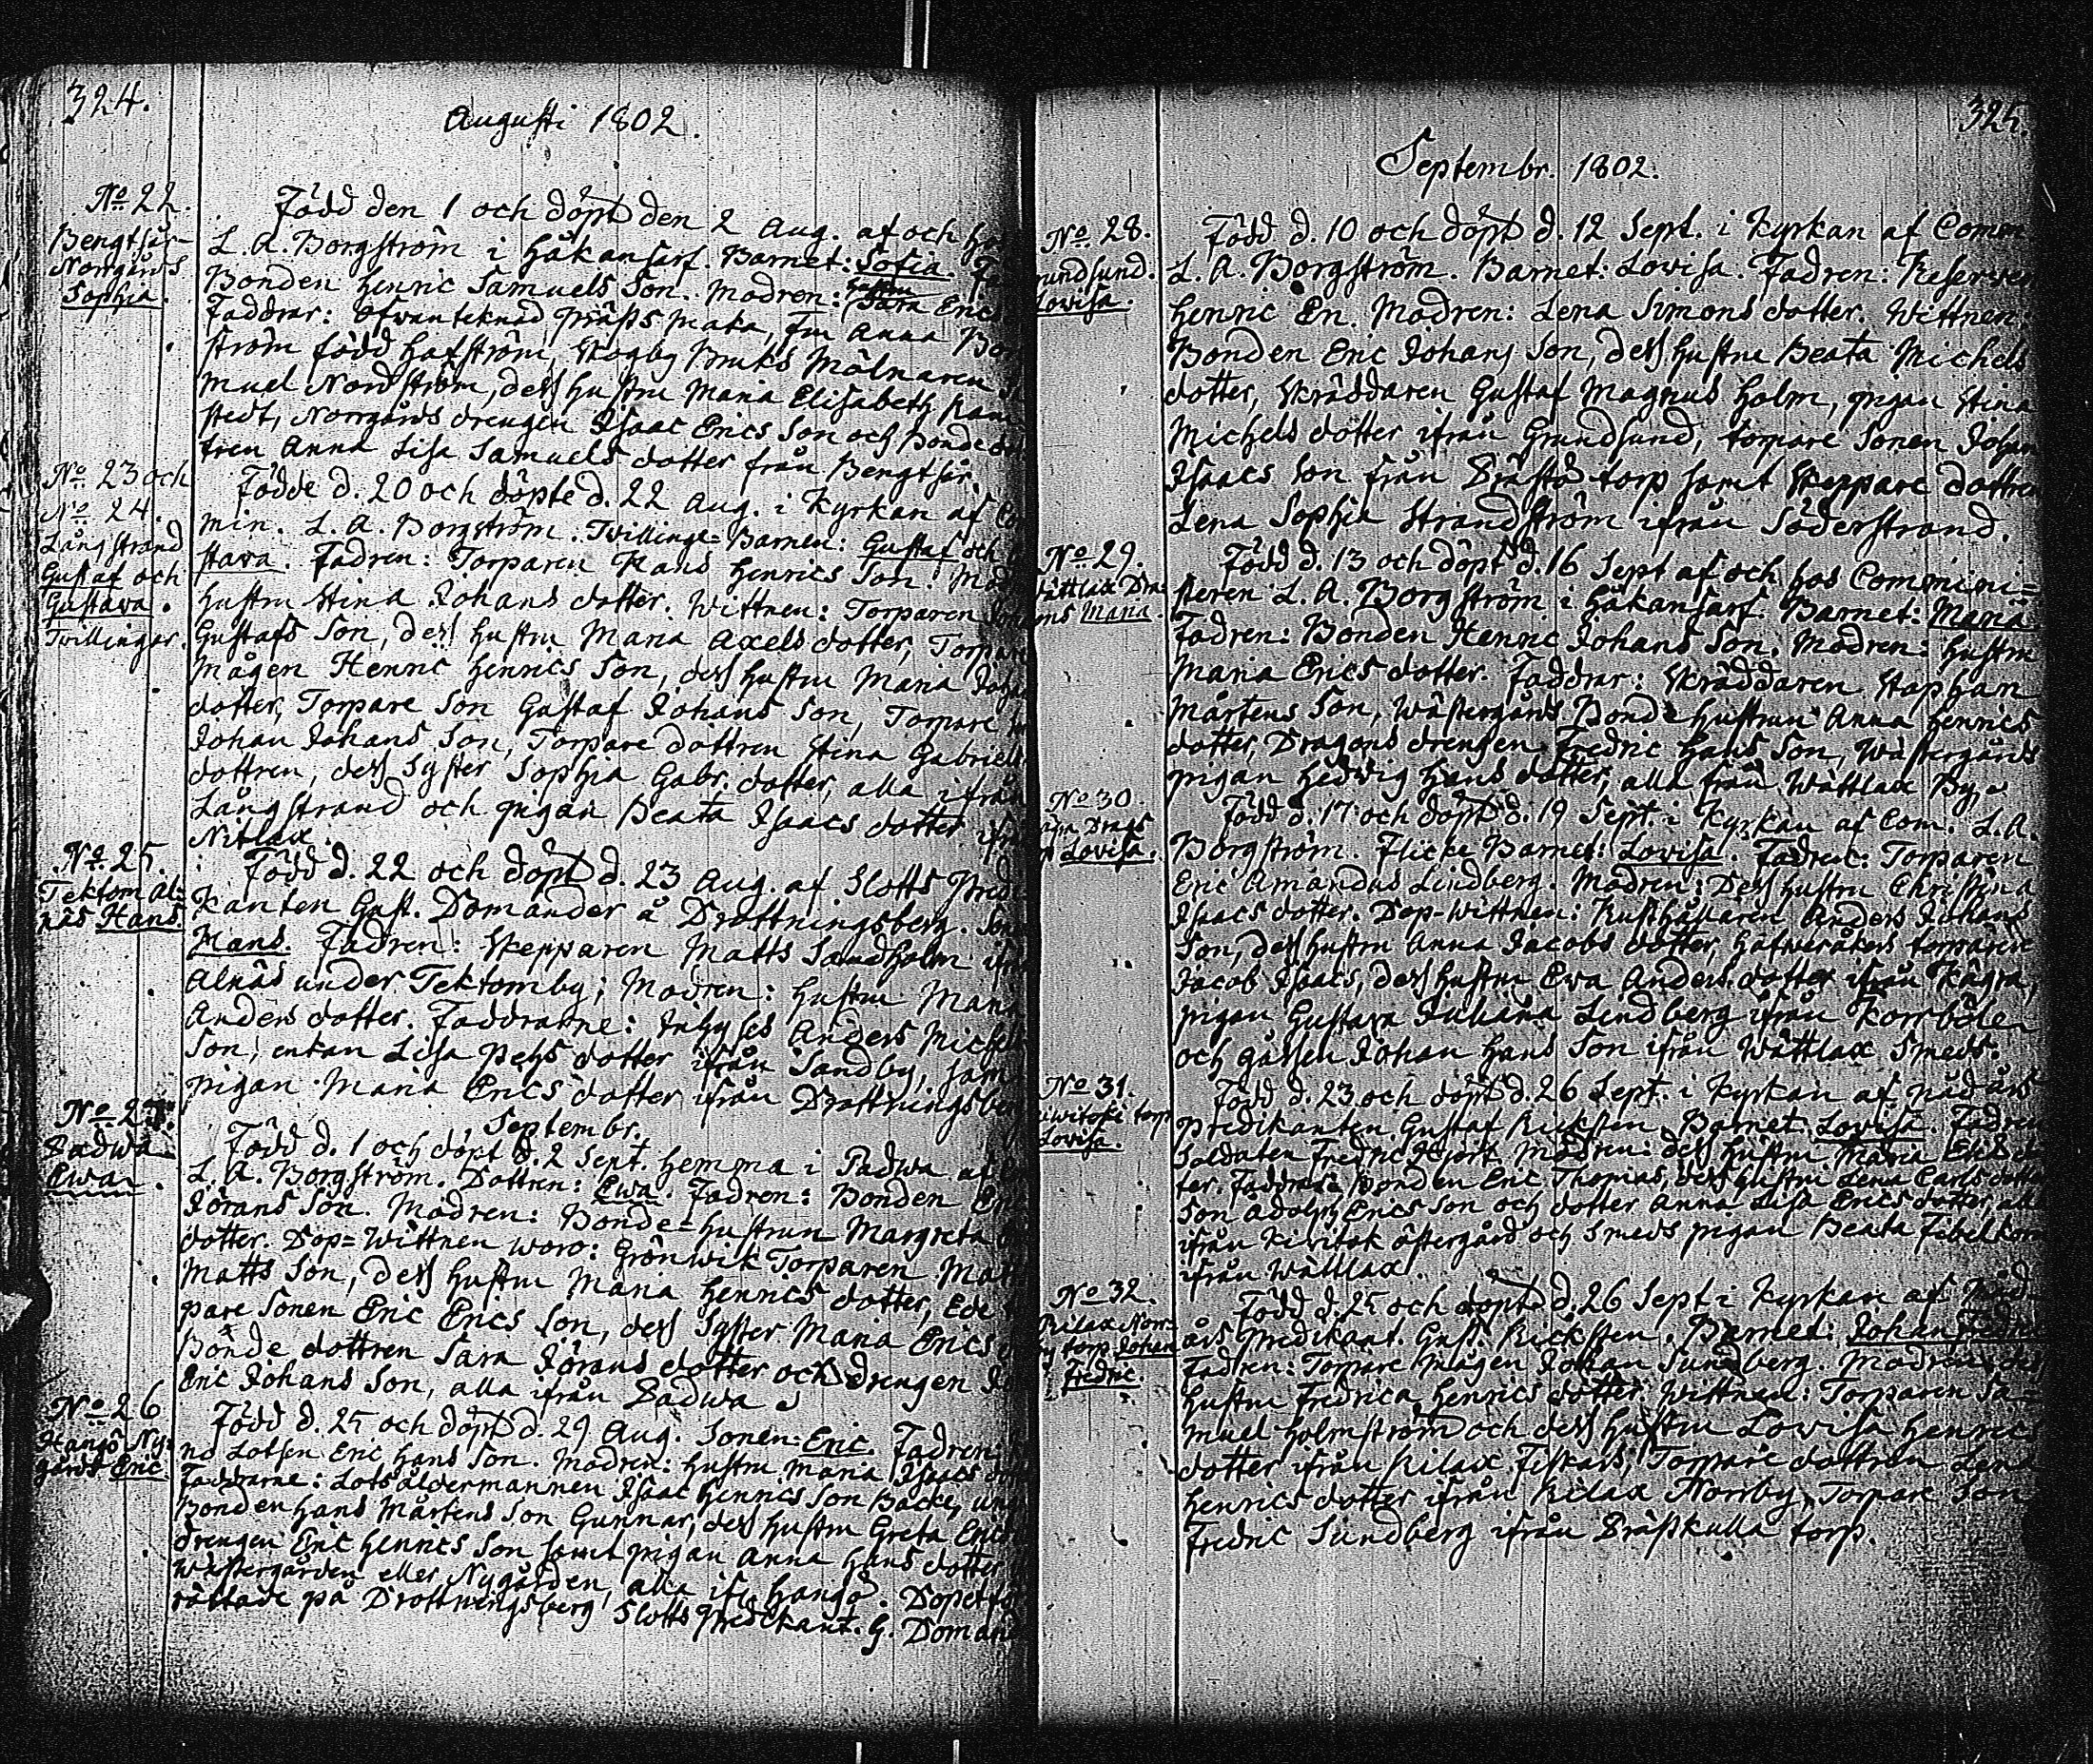 324.
Augusti 1802.
No 22.
Bengtsår-
Norrgårds
Sophia.
Född den 1 och döpt den 2 Aug. af och hos
L. A. Borgström i Håkansarf. Barnet: Sofia.
Bonden Henric Samuels Son. Modren: hustru Sara Erics
Faddrar: Ofwanteknad Präſts Maka, Fru Anna
ström född Hafström, Skogby Bruks Mölnaren
muel Nordström, deſs hustru Maria Elisabeth
stedt, Norrgårds drengen Isaac Erics Son och Bonde
tren Anna Lisa Samuels dotter från Bengtsår.
No 23 och
No 24.
Långstrand
Gustaf och
Gustava.
Twillingar.
Födde d. 20 och döpte d. 22 Aug. i Kyrkan af
min. L. A. Borgström. Twillinge-Barnen: Gustaf och
stava. Fadren: Torparen Hans Henrics Son.
hustru Stina Johans dotter. Wittnen: Torparen
Gustafs Son, deſs hustru Maria Axels dotter,
mågen Henric Henrics Son, deſs hustru Maria
dotter, Torpare Son Gustaf Johans Son, Torpare
Johan Johans Son, Torpare dottren Stina Gabriels
dottren, deſs Syster Sophia Gabr. dotter, alla ifrån
Långstrand och pigan Beata Isaacs dotter
Nitlax.
No 25.
Tektom Al-
näs Hans.
Född d. 22 och döpt d. 23 Aug. af Slotts Pred
kanten Gust. Domander å Drottningsberg.
Hans. Fadren: Skepparen Matts Sandholm
Alnäs under Tektomby; Modren: hustru
Anders dotter. Faddrarne: Inhyses Anders Michels
Son, enkan Lisa Pehrs dotter ifrån Sandby,
pigan Maria Erics dotter ifrån Drottningsberg
Septembr.
Padwa
Ewa.
Född d. 1 och döpt d. 2 Sept. hemma i Padwa af
L. A. Borgström. Dottren: Ewa. Fadren: Bonden
Jörans Son. Modren: Bonde-hustrun Margreta
dotter. Dop-Wittnen woro: Grönwik Torparen
Matts Son, deſs hustru Maria Henrics dotter,
pare Sonen Eric Erics Son, deſs Syster Maria Erics
Bonde dottren Sara Jörans dotter och drengen
Eric Johans Son, alla ifrån Padwa.
No 26
Hangö Ny-
gårds Eric
Född d. 25 och döpt d. 29 Aug. Sonen: Eric. Fadren:
Lotsen Eric Hans Son. Modren: hustru Maria Isaacs
Faddrarne: Lotsåldermannen Isaac Henrics Son Backe,
Bonden Hans Mårtens Son Gunnar, deſs hustru Greta
drengen Eric Henrics Son samt pigan Anna Hans dotter
Wästergården eller Nygården, alla ifr. Hangö.
rättade på Drottningsberg Slotts Predikant. G.
325.
Septembr. 1802.
No 28.
Lovisa.
Född d. 10 och döpt d. 12 Sept. i Kyrkan af
L. A. Borgström. Barnet: Lovisa. Fadren:
Henric En. Modren: Lena Simons dotter. Wittnen:
Bonden Eric Johans Son, deſs hustru Beata Michels
dotter, Skräddaren Gustaf Magnus Holm, pigan Stina
Michels dotter ifrån Grundsund, torpare Sonen Johan
Isaacs Son från torp samt Skeppare dottren
Lena Sophia Strandström ifrån Söderstrand.
No 29.
Maria.
Född d. 13 och döpt d. 16 Sept af och hos Commini-
steren L. A. Borgström i Håkansarf. Barnet: Maria
Fadren: Bonden Henric Johans Son. Modren: hustru
Maria Erics dotter. Faddrar: Skräddaren Staphan
Mårtens Son, Wästergårds Bonde hustrun Anna Henrics
dotter, Dragons drengen Fredric Hans Son, Wästergårds
pigan Hedwig Hans dotter, alla från Wättlax By.
No 30.
Lovisa.
Född d. 17 och döpt d. 19 Sept. i Kyrkan af Com. L. A.
Borgström. Flicke Barnet: Lovisa. Fadren: Torparen
Eric Amandus Lindberg. Modren: Deſs hustru Christina
Isaacs dotter. Dop-Wittnen: Rusthållaren Anders Johans
Son, deſs hustru Anna Jacobs dotter, torparen
Jacob Isaacs, deſs hustru Ewa Anders dotter ifrån Kägra,
pigan Gustava Juliana Lindberg ifrån Korrböle
och gåſsen Johan Hans Son ifrån Wättlax Smeds.
No 31.
torp
Lovisa.
Född d. 23 och döpt d. 26 Sept. i Kyrkan af nådårs
predikanten Gustaf Ricksten. Barnet: Lovisa. Fadren
Soldaten Fredric Hjort. Modren: deſs hustru Maria
ter. Faddrar: Bonden Eric Thomas, deſs hustru Lena Carls dotter
Son Adolph Erics Son och dotter Anna Lisa Erics dotter,
ifrån Kivitok östergård och Smeds pigan Beata
ifrån Wättlax.
No 32.
torp Johan
Fredric.
Född d. 25 och döpt d. 26 Sept. i Kyrkan af Nåd-
års Predikant. Gust. Ricksten. Barnet: Johan Fredric
Fadren: Torpare mågen Johan Sundberg. Modren: deſs
hustru Fredrica Henrics dotter. Wittnen: Torparen Sa-
muel Holmström och deſs hustru Lowisa Henrics
dotter ifrån Rilax Fiskars, Torpare dottren Lena
Henrics dotter ifrån Rilax Norrby, Torpare Son
Fredric Sundberg ifrån torp.